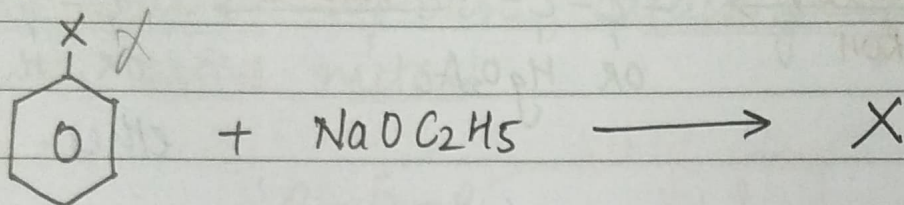 X
+ NaOC2H5 ⟶ X